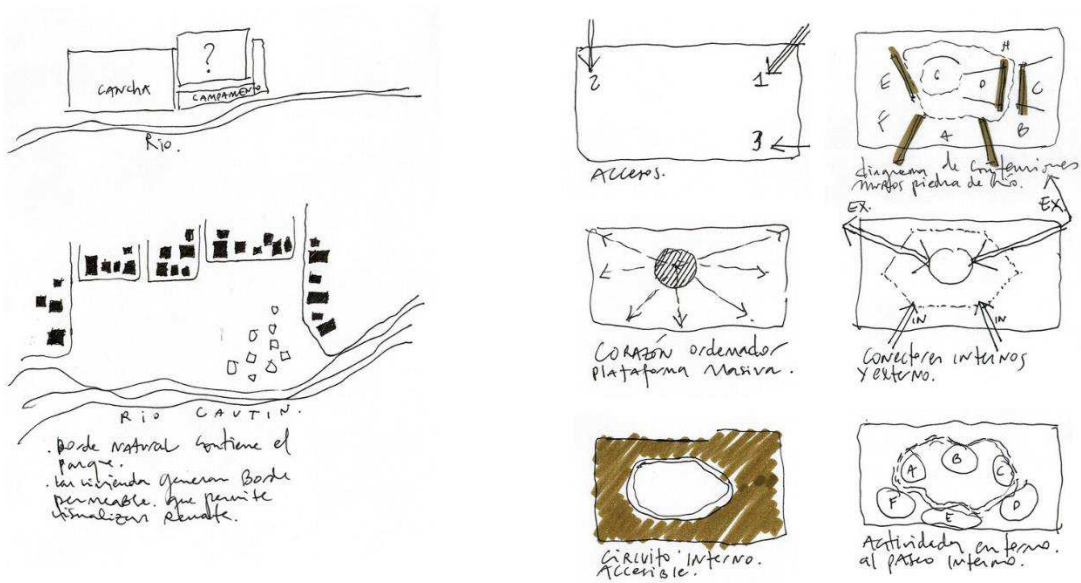 ?
CANCHA
CAMPAMENTO
Río.
RÍO CAUTIN.
. Borde natural contiene el
parque.
. Las vivienda generan Borde
permeable. que permite
visualizar remate.
2
1
3
Accesos.
H
E
C
D
C
F
A
B
diagrama de contenciones
muros piedra de río.
CORAZÓN ordenador
Plataforma Masiva.
EX.
EX.
IN
IN
Conectores internos
y externo.
CIRCUITO INTERNO.
ACCESIBLE.
A
B
C
F
D
E
Actividades en torno.
al paseo interno.